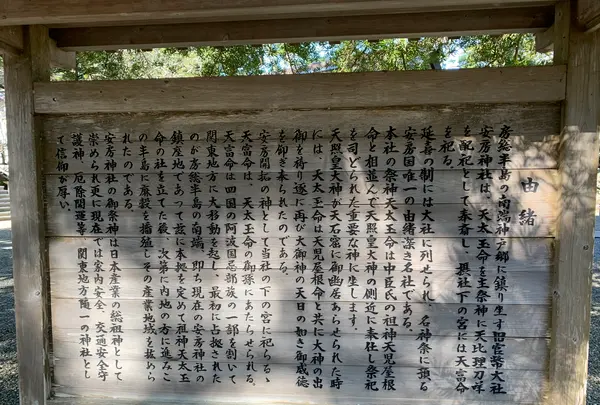 由緒
房総半島の南端神戸郷に鎮り坐す旧官幣大社
安房神社は、天太玉命を主祭神に天比理刀咩
を配祀として奉斎し、摂社下の宮には天富命
を祀る。
延喜の制には大社に列せられ、名神祭に預る
安房国唯一の由緒深き名社である。
本社の祭神天太玉命は中臣氏の祖神天児屋根
命と相並んで天照皇大神の側近に奉仕し祭祀
を司どられた重要な神に坐します。
天照皇大神が天石窟に御幽居あらせられた時
には、天太玉命は天児屋根命と共に大神の出
御を祷り遂に再び大御神の天日の如き御威徳
を仰ぎ来られたのである。
安房開拓の神として当社の下の宮に祀らるゝ
天富命は、天太玉命の御孫にあたらせられ、
天富命は四国の阿波国忌部族の一部を割いて
関東地方に大移動を起し、最初に占拠された
のが房総半島の南端、即ち現在の安房神社の
鎮座地であって茲に本拠を定めて祖神天太玉
命の社を立てた後、次第に内地の方に進みこ
の半島に麻穀を播殖しその産業地域を拡めら
れたのである。
安房神社の御祭神は日本産業の総祖神として
崇められ更に現在では家内安全、交通安全守
護神、厄除開運等、関東地方随一の神社とし
て信仰が厚い。